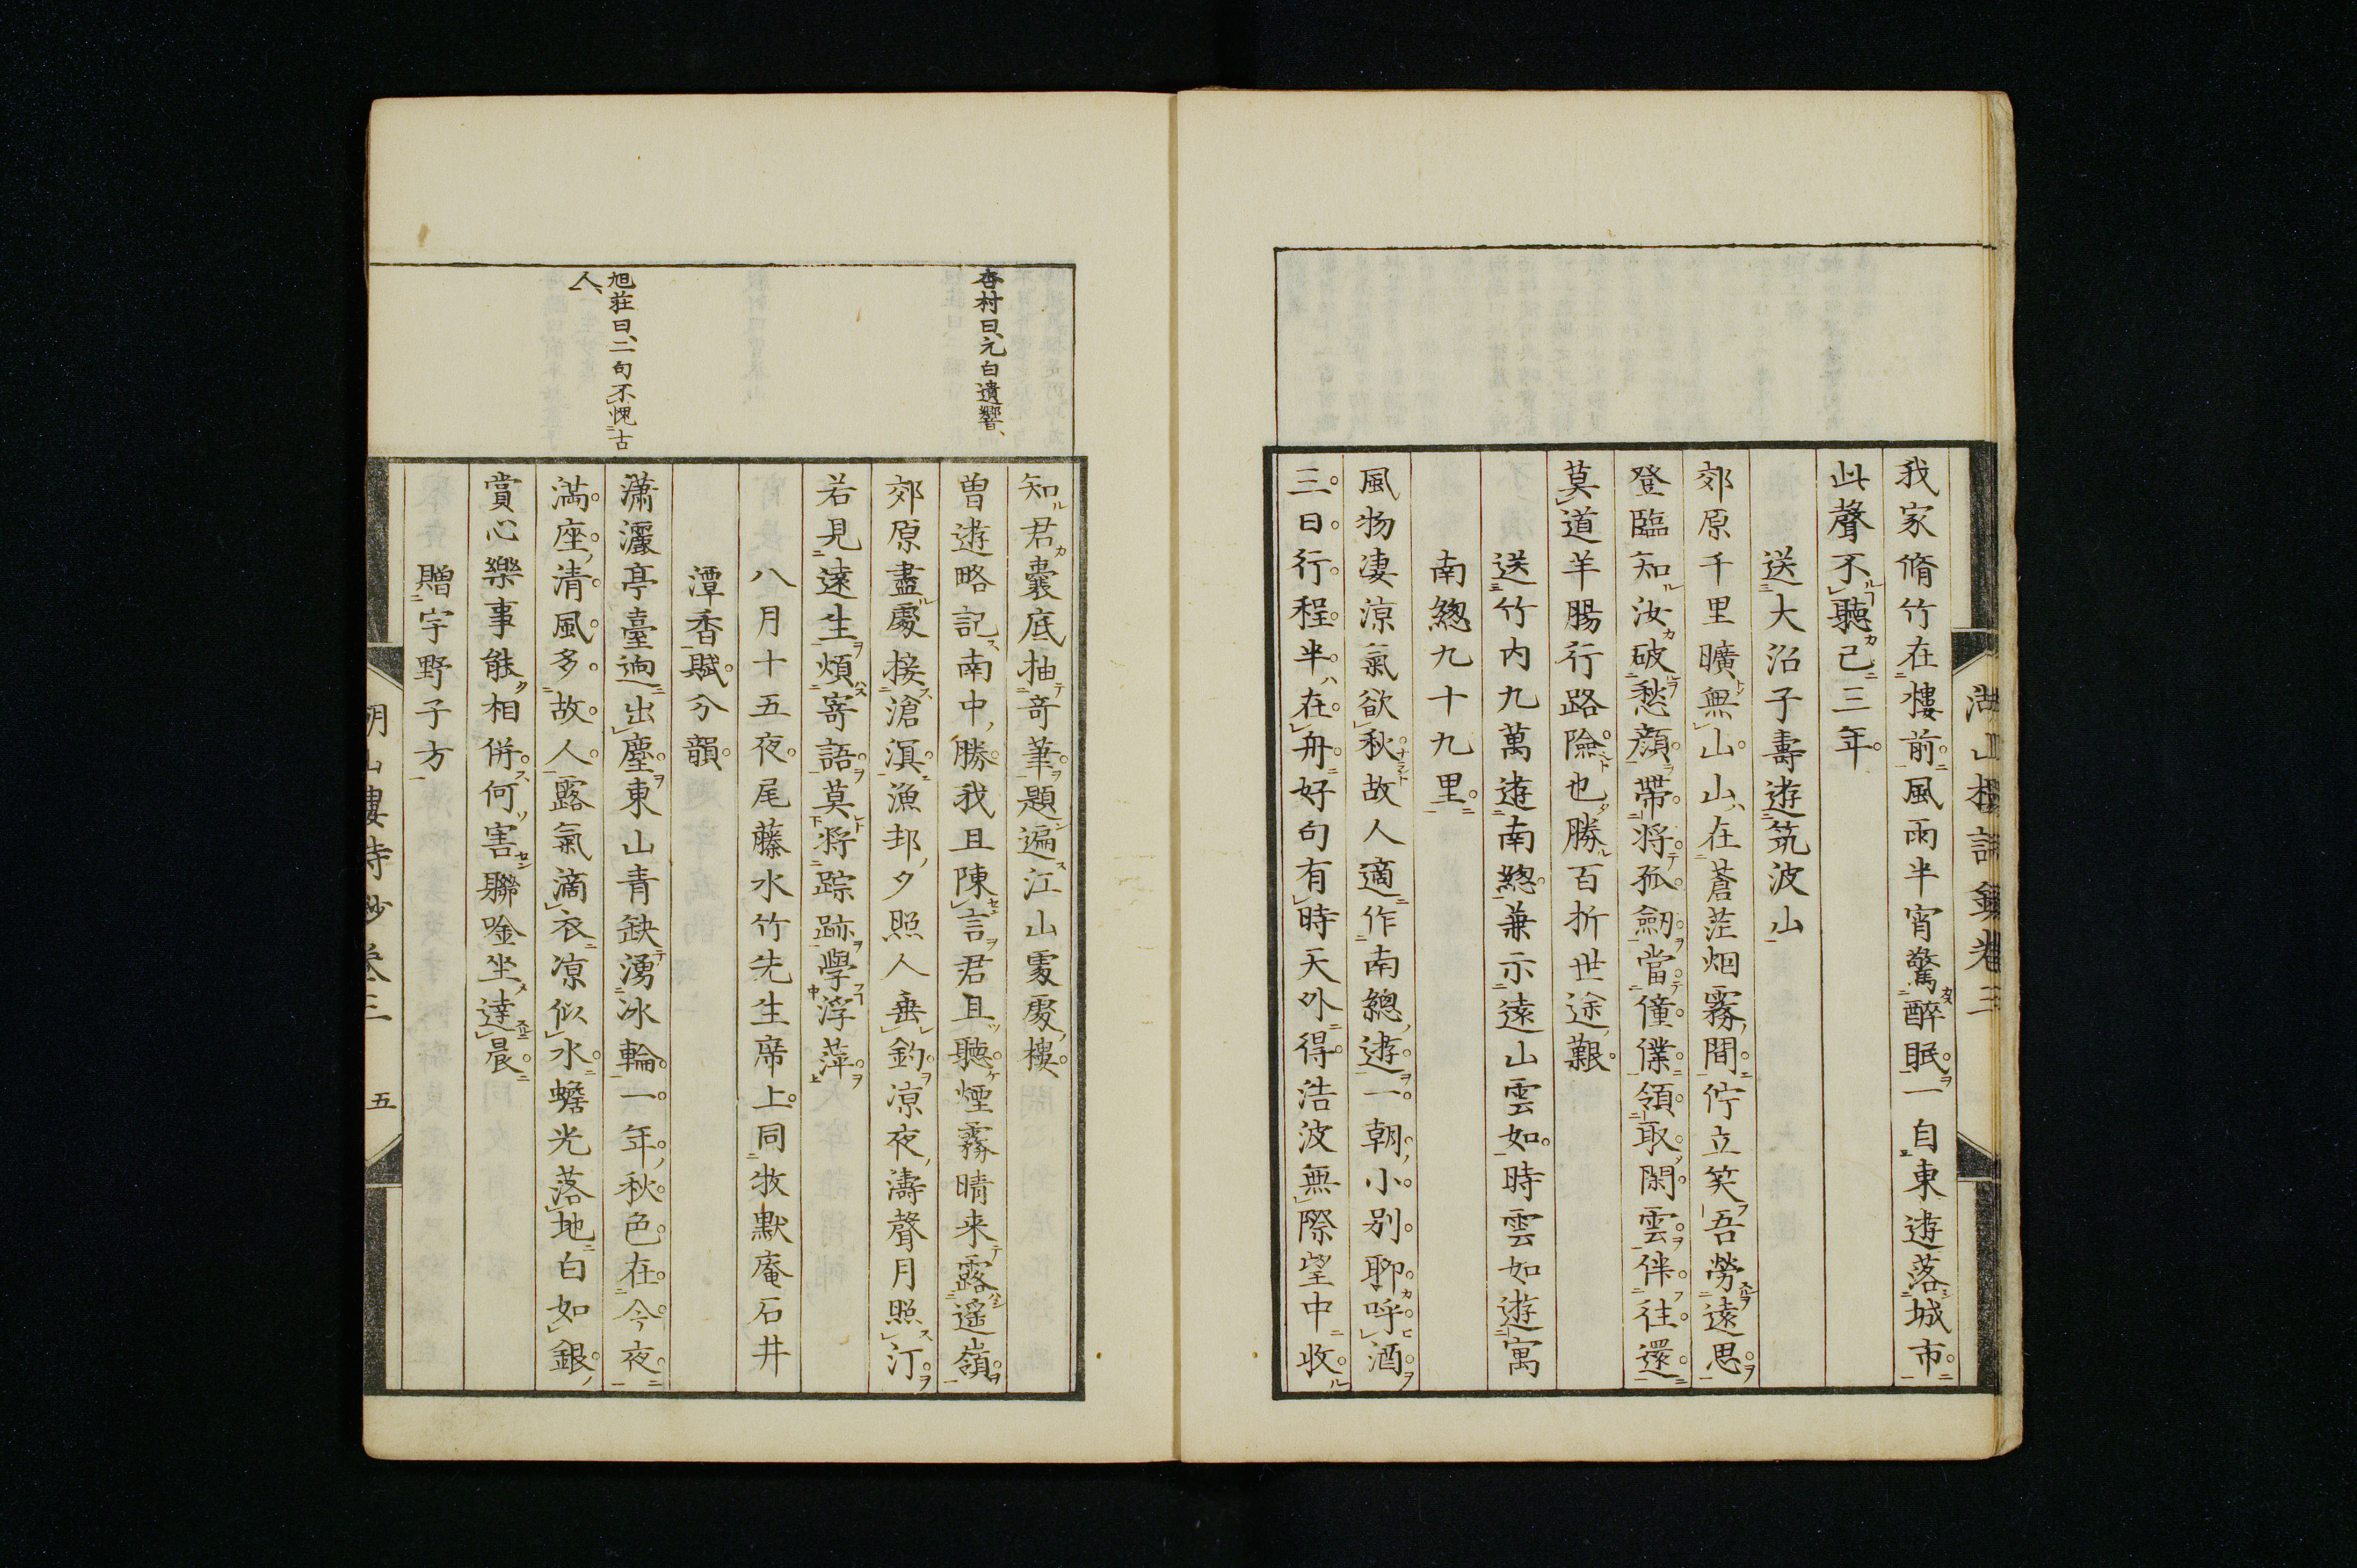 我家脩竹在樓前風雨半宵驚醉眠一自東遊落城市
此聲不聽已三年
送大沼子壽遊筑波山
郊原千里曠無山山在蒼茫烟霧間佇立笑吾勞遠思
登臨知汝破愁顔帶將孤劒當僮僕領取閑雲伴往還
莫道羊腸行路險也勝百折世途艱
送竹内九萬遊南總兼示遠山雲如時雲如遊寓
南總九十九里
風物凄涼氣欲秋故人適作南總遊一朝小別聊呼酒
三日行程半在舟好句有時天外得浩波無際望中收
知君囊底抽奇筆題遍江山處處樓
曽遊略記南中勝我且陳言君且聽煙霧晴来露遥嶺
郊原盡處接滄溟漁邨夕照人垂釣凉夜濤聲月照汀
若見遠生煩寄語莫將踪跡學浮萍
八月十五夜尾藤水竹先生席上同牧默庵石井
潭香賦分韻
瀟灑亭臺逈出塵東山青缺湧冰輪一年秋色在今夜
滿座清風多故人露氣滴衣凉似水蟾光落地白如銀
賞心樂事能相併何害聯唫坐達晨
贈宇野子方
杏村曰、元白遺響、
旭荘曰、二句不愧古
人、
湖山樓詩鈔卷三
五